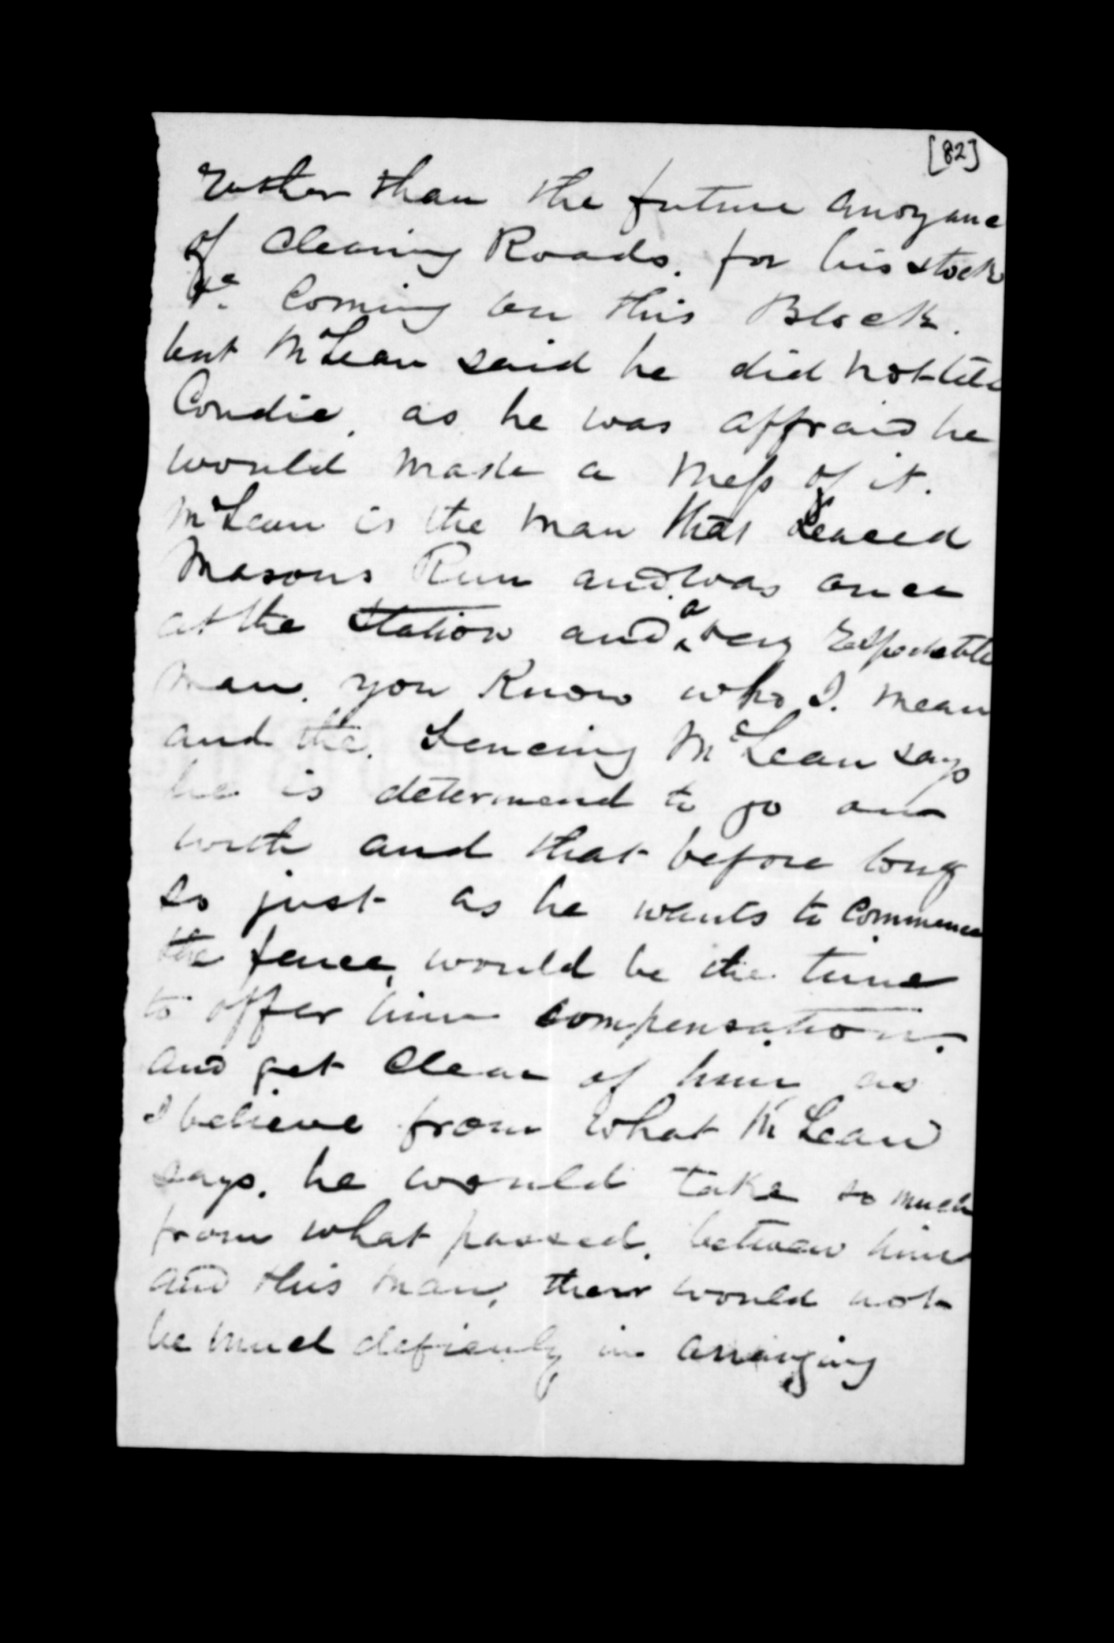 [82]
Rather than the future anoyance
of Clearing Roads. for his stock
&c. Coming on this Block.
but McLean said he did not tell
Condie, as he was affraid he
would make a mess of it.
McLean is the man that Leaced
Masons Run and was once
at the Station and a very Respectable
man. you Know who I. mean
and the. fencing McLean says
he is determend to go on
with and that before long
So just as he wants to Commence
the fence, would be the time
to offer him compensation.
and get Clear of him as
I believe from what McLean
says. he would take so much
from what passed. between him
and this man, ther would not
be much in arranging